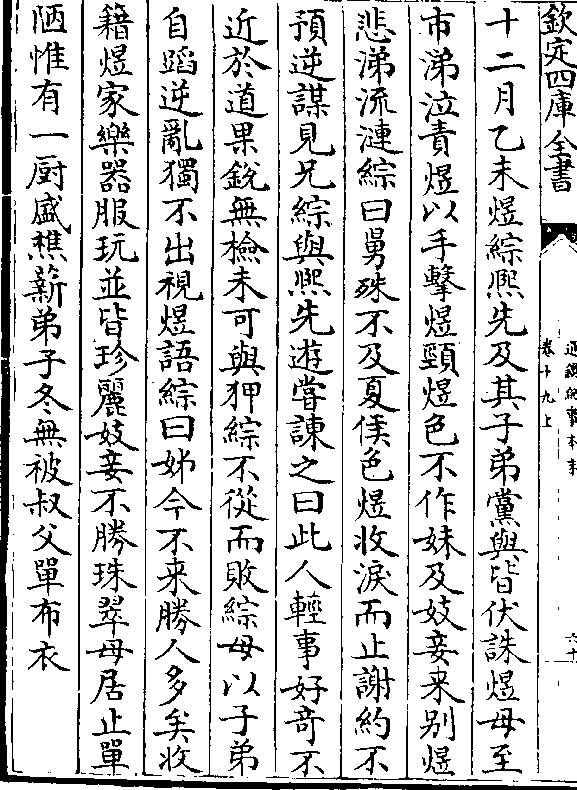 欽定四庫全書
通鑑紀事本末
卷十九上
六十
十二月乙未煜綜熙先及其子弟黨與皆伏誅煜母至
市涕泣責煜以手擊煜頸煜色不作妹及妓妾来别煜
悲涕流漣綜曰舅殊不及夏侯色煜收淚而止謝約不
預逆謀見兄綜與熙先遊嘗諌之曰此人輕事好奇不
近於道果銳無檢未可與狎綜不從而敗綜母以子弟
自蹈逆亂獨不出視煜語綜曰姊今不来勝人多矣收
籍煜家樂器服玩並皆珍麗妓妾不勝珠翠母居止單
陋惟有一厨盛樵薪弟子冬無被叔父單布衣